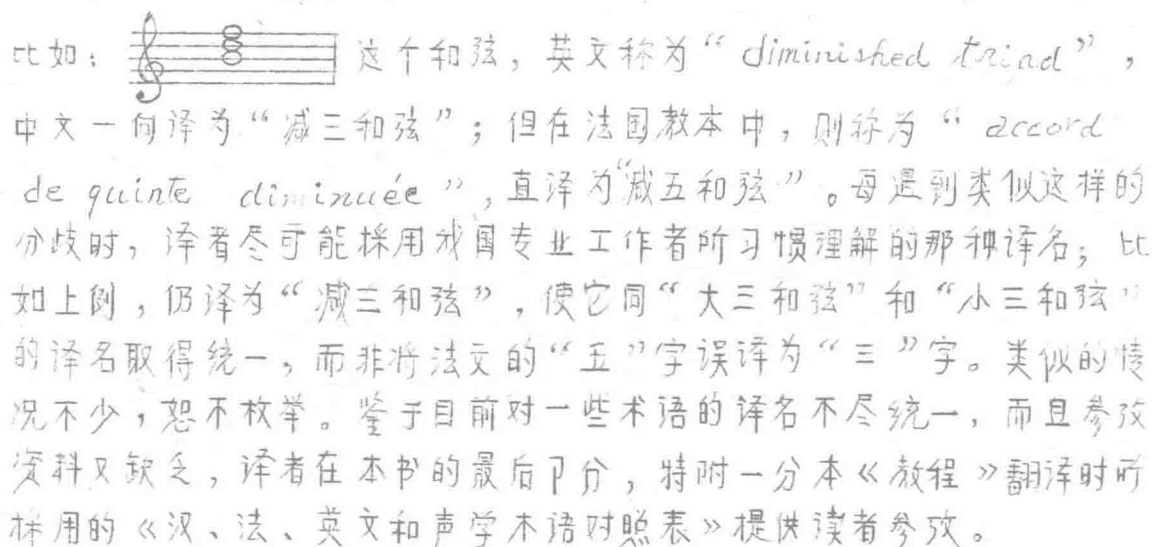 比如： 这个和弦，英文称为“diminished triad”，
中文一向译为“减三和弦”；但在法国教本中，则称为“accord
de quinte diminuée”，直译为“减五和弦”。每遇到类似这样的
分歧时，译者尽可能採用我国专业工作者所习惯理解的那种译名；比
如上例，仍译为“减三和弦”，使它同“大三和弦”和“小三和弦”
的译名取得统一，而非将法文的“五”字误译为“三”字。类似的情
况不少，恕不枚举。鉴于目前对一些术语的译名不尽统一，而且参攷
资料又缺乏，译者在本书的最后卩分，特附一分本《教程》翻译时所
採用的《汉、法、英文和声学术语对照表》提供读者参攷。